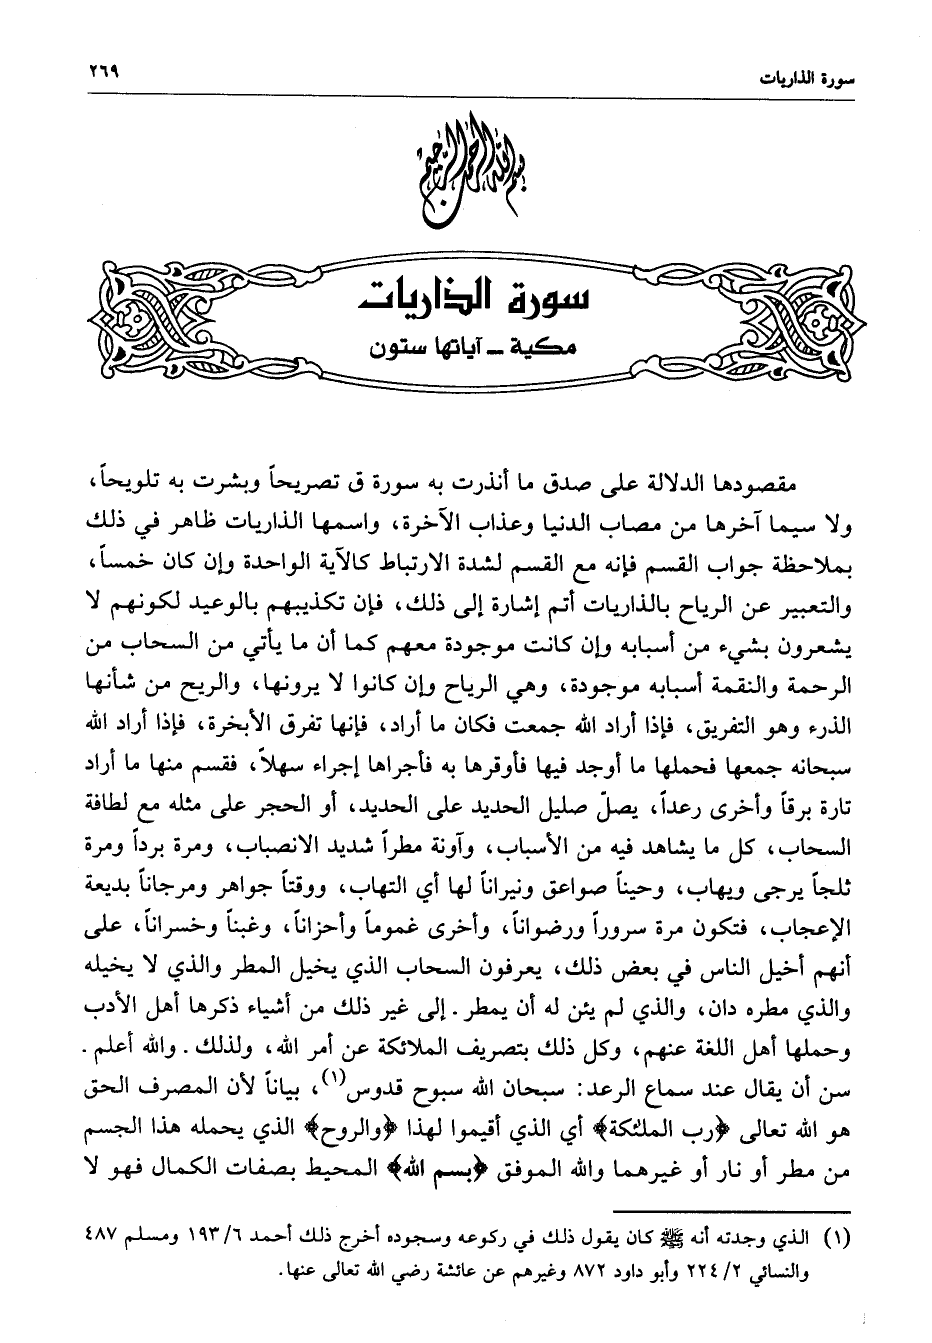 سورة الذاريات
٢٦٩
بسم الله الرحمن الرحيم
سورة الذاريات
مكية ــ آياتها ستون
مقصودها الدلالة على صدق ما أنذرت به سورة ق تصريحاً وبشرت به تلويحاً،
ولا سيما آخرها من مصاب الدنيا وعذاب الآخرة، واسمها الذاريات ظاهر في ذلك
بملاحظة جواب القسم فإنه مع القسم لشدة الارتباط كالآية الواحدة وإن كان خمساً،
والتعبير عن الرياح بالذاريات أتم إشارة إلى ذلك، فإن تكذيبهم بالوعيد لكونهم لا
يشعرون بشيء من أسبابه وإن كانت موجودة معهم كما أن ما يأتي من السحاب من
الرحمة والنقمة أسبابه موجودة، وهي الرياح وإن كانوا لا يرونها، والريح من شأنها
الذرء وهو التفريق، فإذا أراد الله جمعت فكان ما أراد، فإنها تفرق الأبخرة، فإذا أراد الله
سبحانه جمعها فحملها ما أوجد فيها فأوقرها به فأجراها إجراء سهلاً، فقسم منها ما أراد
تارة برقاً وأخرى رعداً، يصلّ صليل الحديد على الحديد، أو الحجر على مثله مع لطافة
السحاب، كل ما يشاهد فيه من الأسباب، وآونة مطراً شديد الانصباب، ومرة برداً ومرة
ثلجاً يرجى ويهاب، وحيناً صواعق ونيراناً لها أي التهاب، ووقتاً جواهر ومرجاناً بديعة
الإعجاب، فتكون مرة سروراً ورضواناً، وأخرى غموماً وأحزاناً، وغبناً وخسراناً، على
أنهم أخيل الناس في بعض ذلك، يعرفون السحاب الذي يخيل المطر والذي لا يخيله
والذي مطره دان، والذي لم يئن له أن يمطر. إلى غير ذلك من أشياء ذكرها أهل الأدب
وحملها أهل اللغة عنهم، وكل ذلك بتصريف الملائكة عن أمر الله، ولذلك. والله أعلم.
سن أن يقال عند سماع الرعد: سبحان الله سبوح قدوس(١)، بياناً لأن المصرف الحق
هو الله تعالى ﴿رب الملئكة﴾ أي الذي أقيموا لهذا ﴿والروح﴾ الذي يحمله هذا الجسم
من مطر أو نار أو غيرهما والله الموفق ﴿بسم الله﴾ المحيط بصفات الكمال فهو لا
(١) الذي وجدته أنه ﷺ كان يقول ذلك في ركوعه وسجوده أخرج ذلك أحمد ١٩٣/٦ ومسلم ٤٨٧
والنسائي ٢/ ٢٢٤ وأبو داود ٨٧٢ وغيرهم عن عائشة رضي الله تعالى عنها.